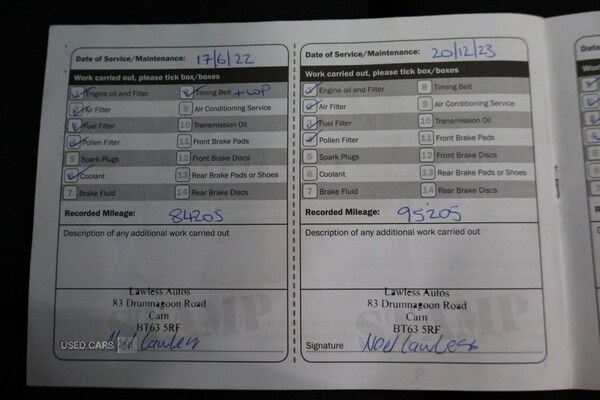 Date of Service/Maintenance: 17/6/22
Work carried out, please tick box/boxes
Engine oil and Filter
Timing Belt + WP
Air Filter
9 Air Conditioning Service
Fuel Filter
10 Transmission Oil
Pollen Filter
11 Front Brake Pads
5 Spark Plugs
12 Front Brake Discs
Coolant
13 Rear Brake Pads or Shoes
7 Brake Fluid
14 Rear Brake Discs
Recorded Mileage: 84205
Description of any additional work carried out
STAMP
Lawless Autos
83 Drumnagoon Road
Carn
BT63 5RF
Noel Lawless
USED CARS NI
Date of Service/Maintenance: 20/12/23
Work carried out, please tick box/boxes
Engine oil and Filter
8 Timing Belt
Air Filter
9 Air Conditioning Service
Fuel Filter
10 Transmission Oil
Pollen Filter
11 Front Brake Pads
5 Spark Plugs
12 Front Brake Discs
6 Coolant
13 Rear Brake Pads or Shoes
7 Brake Fluid
14 Rear Brake Discs
Recorded Mileage: 95205
Description of any additional work carried out
STAMP
Lawless Autos
83 Drumnagoon Road
Carn
BT63 5RF
Signature Noel Lawless